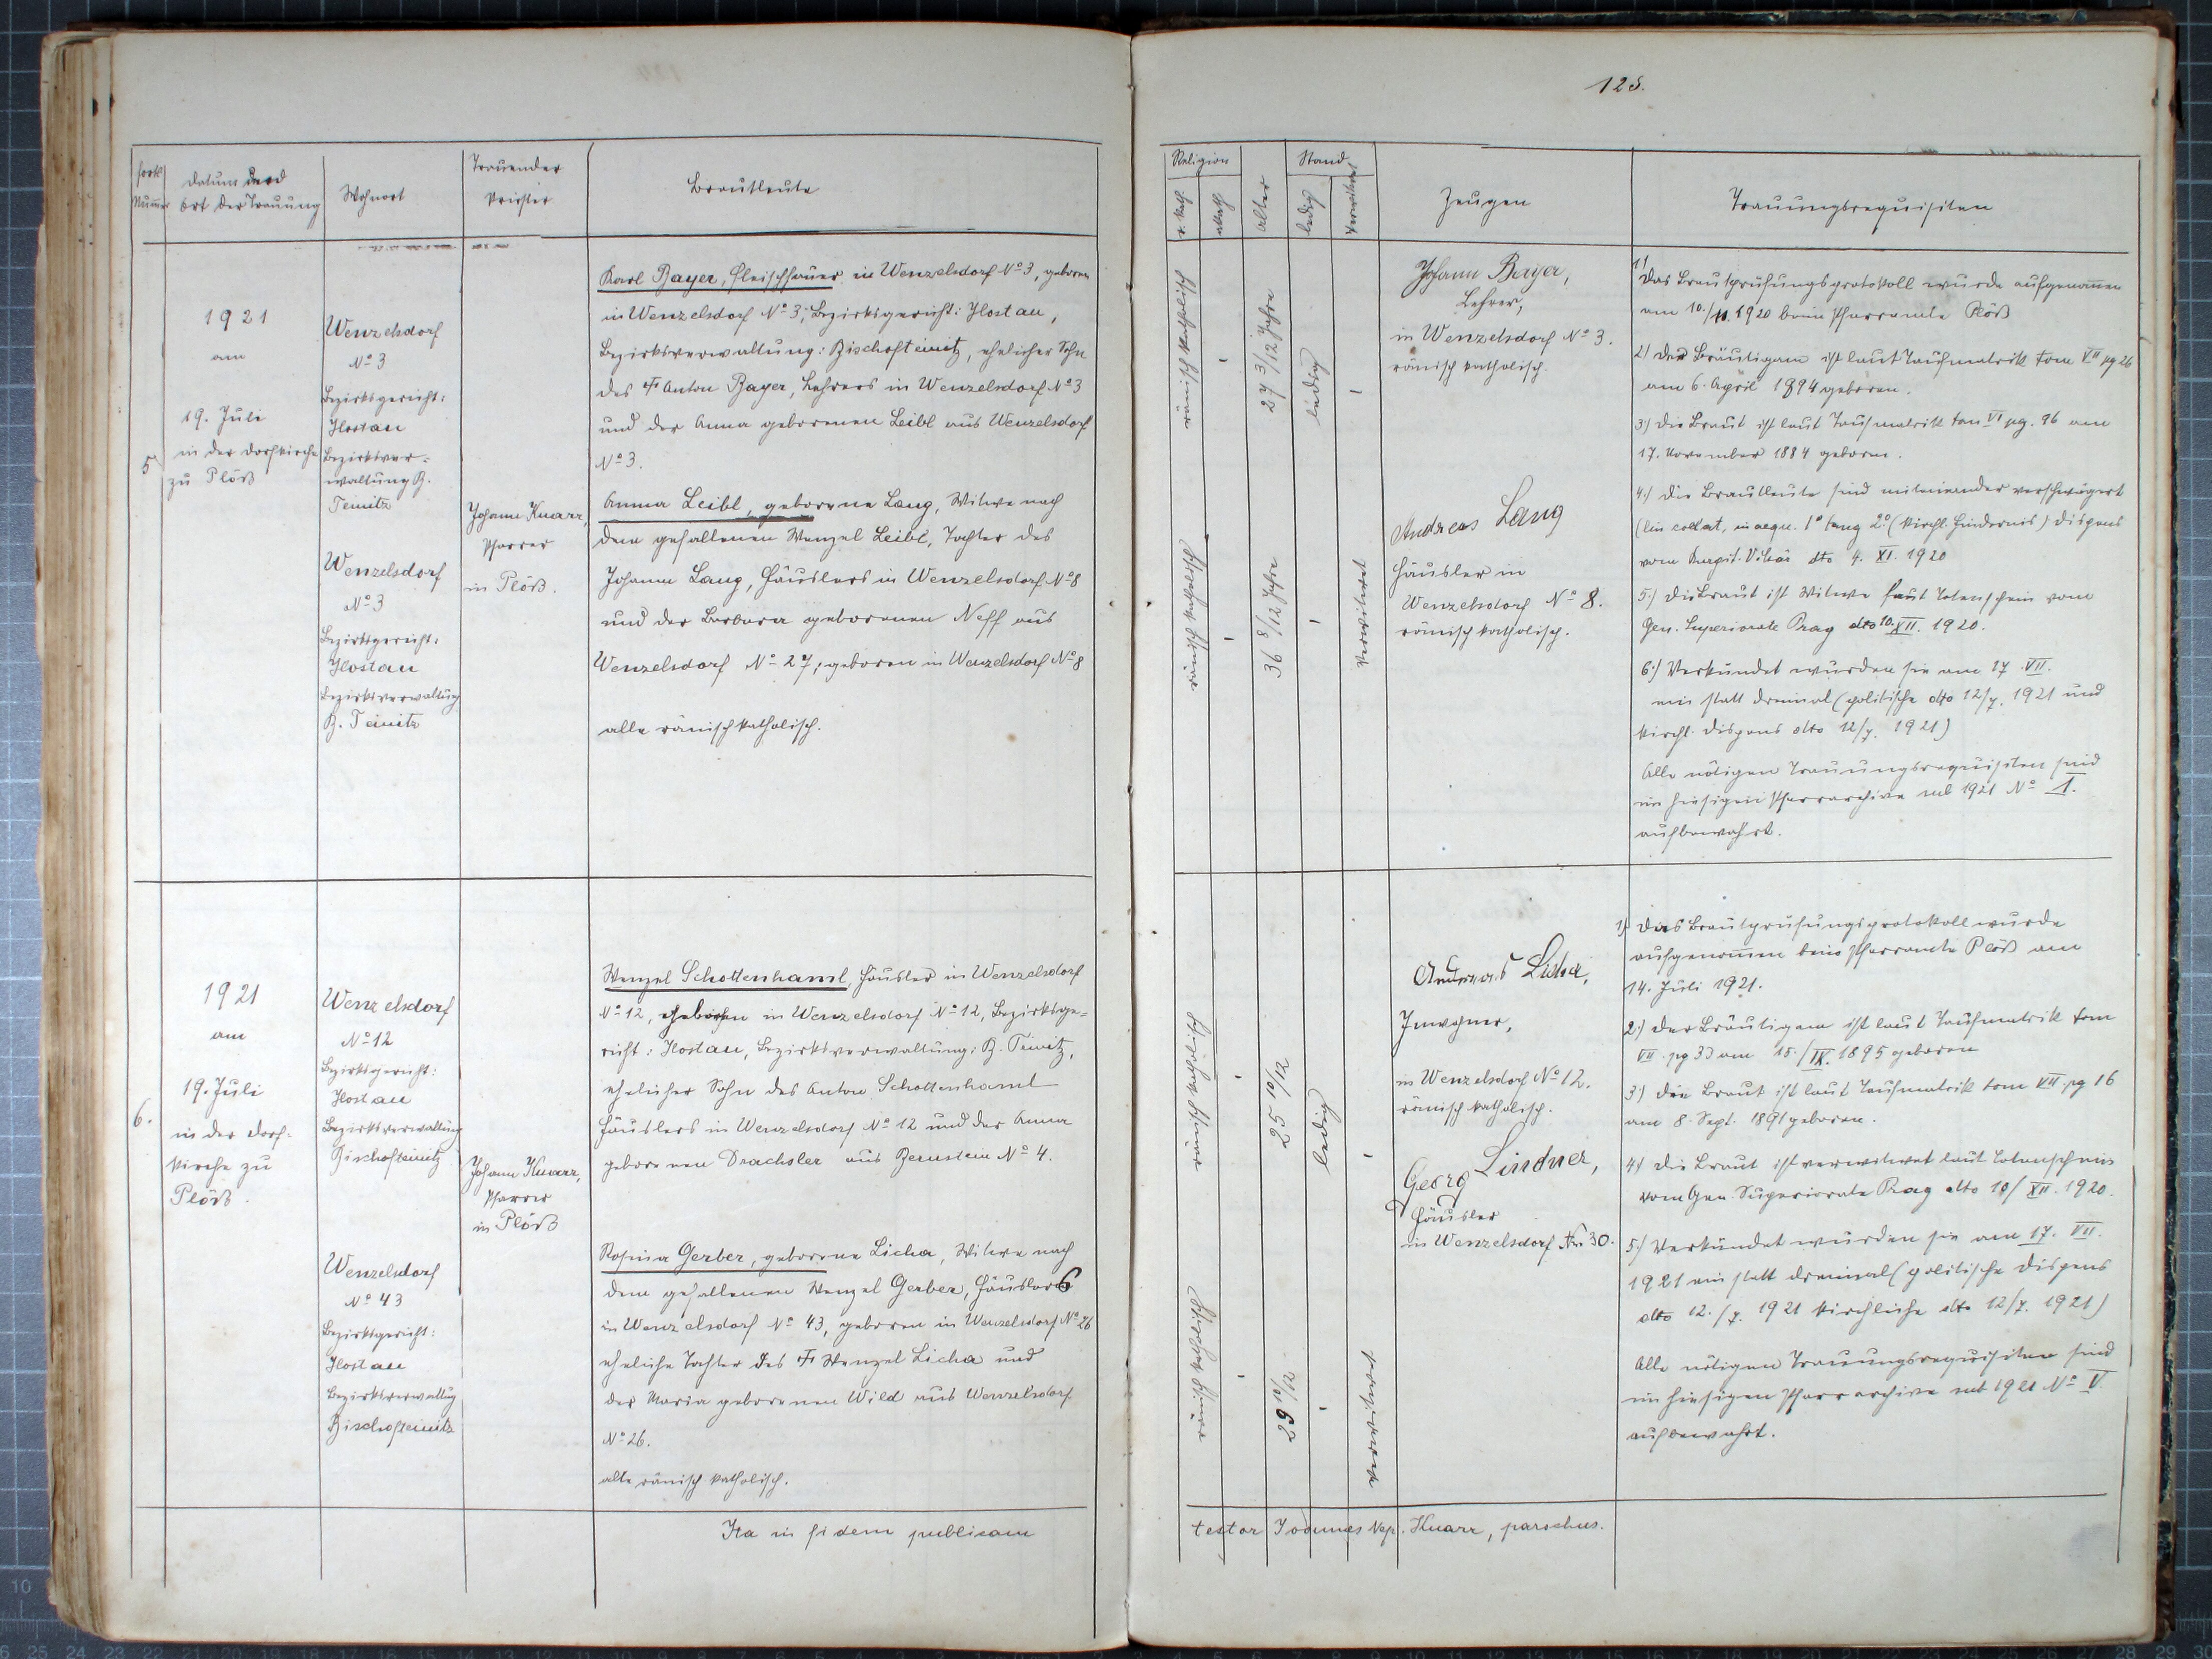 125.
fortl.
Nummer
Datum und
Ort der Trauung
Wohnort
Trauender
Priester
Brautleute
Religion
r. kath.
akath.
Alter
Stand
ledig
verwitwet
Zeugen
Trauungsrequisiten
5
1921
am
19. Juli
in der Dorfkirche
zu Plöß
Wenzelsdorf
No 3
Bezirksgericht:
Hostau
Bezirksver=
waltung B.
Teinitz
Wenzelsdorf
No 3
Bezirksgericht:
Hostau
Bezirksverwaltung
B. Teinitz
Johann Knarr,
Pfarrer
in Plöß.
Karl Bayer, Fleischhauer in Wenzelsdorf No 3, geboren
in Wenzelsdorf No 3, Bezirksgericht: Hostau,
Bezirksverwaltung: Bischofteinitz, ehelicher Sohn
des † Anton Bayer, Lehrers in Wenzelsdorf No 3
und der Anna geborenen Leibl aus Wenzelsdorf
No 3.
Anna Leibl, geborene Lang, Witwe nach
dem gefallenen Wenzel Leibl, Tochter des
Johann Lang, Häuslers in Wenzelsdorf No 8
und der Barbara geborenen Neff aus
Wenzelsdorf No 27, geboren in Wenzelsdorf No 8
alle römisch katholisch.
römisch katholisch
27 3/12 Jahre
ledig
römisch katholisch
36 8/12 Jahre
verwitwet
Johann Bayer,
Lehrer,
in Wenzelsdorf No 3.
römisch katholisch.
Andreas Lang
Häusler in
Wenzelsdorf No 8.
römisch katholisch.
1) Das Brautprüfungsprotokoll wurde aufgenommen
am 10./11. 1920 beim Pfarramte Plöß
2) Der Bräutigam ist laut Taufmatrik tom VII pg 26
am 6. April 1894 geboren.
3.) Die Braut ist laut Taufmatrik tom VI pg. 96 am
17. November 1884 geboren.
4.) Die Brautleute sind miteinander verschwägert
(lin collat, in aequ. 1o tang 2o (kirchl. Hindernis) Dispens
vom Kapit. Vikar dto 4. XI. 1920
5.) Die Braut ist Witwe laut Totenschein vom
Gen. Superiorate Prag dto 10. XII. 1920.
6.) Verkündet wurden sie am 17. VII.
ein statt dreimal (politische dto 12/7. 1921 und
kirchl. Dispens dto 12/7. 1921)
Alle nötigen Trauungsrequisiten sind
im hiesigen Pfarrarchive sub 1921 No I.
aufbewahrt.
6.
1921
am
19. Juli
in der Dorf=
kirche zu
Plöß.
Wenzelsdorf
No 12
Bezirksgericht:
Hostau
Bezirksverwaltung
Bischofteinitz
Wenzelsdorf
No 43
Bezirksgericht:
Hostau
Bezirksverwaltung
Bischofteinitz
Johann Knarr,
Pfarrer
in Plöß
Wenzel Schottenhaml, Häusler in Wenzelsdorf
No 12, geboren in Wenzelsdorf No 12, Bezirksge=
richt: Hostau, Bezirksverwaltung: B. Teinitz,
ehelicher Sohn des Anton Schottenhaml
Häuslers in Wenzelsdorf No 12 und der Anna
geborenen Drachsler aus Bernstein No 4.
Rosina Gerber, geborene Licha, Witwe nach
dem gefallenen Wenzel Gerber, Häuslers
in Wenzelsdorf No 43, geboren in Wenzelsdorf No 26
eheliche Tochter des † Wenzel Licha und
der Maria geborenen Wild aus Wenzelsdorf
No 26.
alle römisch katholisch.
römisch katholisch
25 10/12
ledig
römisch katholisch
29 10/12
verwitwet
Andreas Licha,
Inwohner,
in Wenzelsdorf No 12.
römisch katholisch.
Georg Lindner,
Häusler
in Wenzelsdorf Nr. 30.
1) Das Brautprüfungsprotokoll wurde
aufgenommen beim Pfarramte Plöß am
14. Juli 1921.
2.) Der Bräutigam ist laut Taufmatrik tom
VII. pg 33 am 15./IX. 1895 geboren
3.) Die Braut ist laut Taufmatrik tom VII. pg 16
am 8. Sept. 1891 geboren.
4) Die Braut ist verwitwet laut Totenschein
vom Gen. Superiorate Prag dto 10/XII. 1920.
5.) Verkündet wurden sie am 17. VII.
1921 ein statt dreimal (politische Dispens
dto 12./7. 1921 kirchliche dto 12/7. 1921)
Alle nötigen Trauungsrequisiten sind
im hiesigen Pfarrarchive sub 1921 No V.
aufbewahrt.
Ita in fidem publicam
testor Joannes Nep. Knarr, parochus.